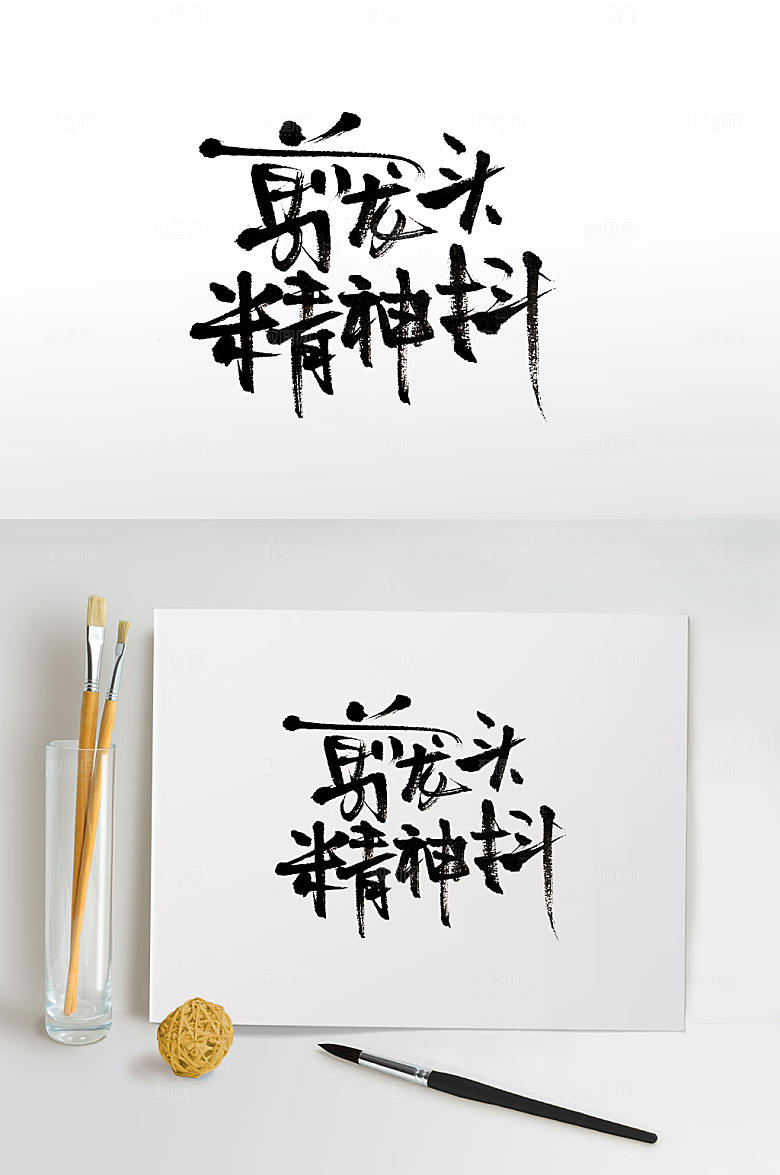 剪龙头
精神抖
剪龙头
精神抖